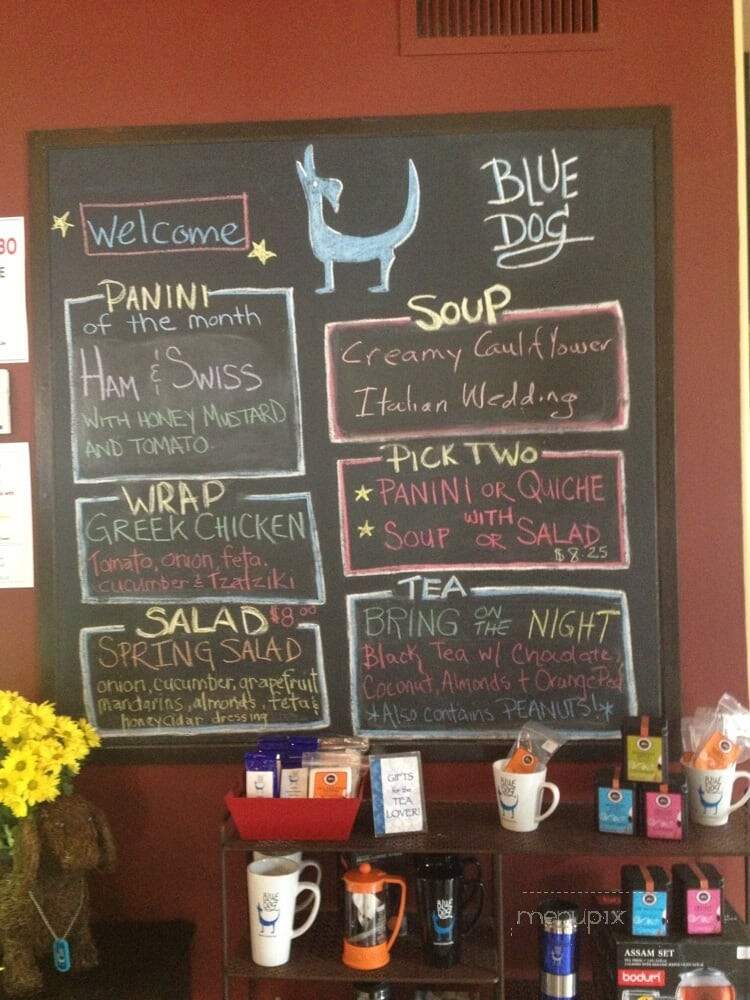 Welcome
BLUE
DOG
PANINI
of the month
HAM & SWISS
WITH HONEY MUSTARD
AND TOMATO
SOUP
Creamy Cauliflower
Italian Wedding
PICK TWO
PANINI OR QUICHE
WITH
SOUP OR SALAD
$8.25
WRAP
GREEK CHICKEN
Tomato, onion, feta,
cucumber & Tzatziki
SALAD $8.00
SPRING SALAD
onion, cucumber, grapefruit
mandarins, almonds, feta &
honey cidar dressing
TEA
BRING ON THE NIGHT
Black Tea w/ Chocolate,
Coconut, Almonds + Orange Peel
*Also contains PEANUTS!*
GIFTS
for the
TEA
LOVER!
BLUE
DOG
menupix
ASSAM SET
bodum